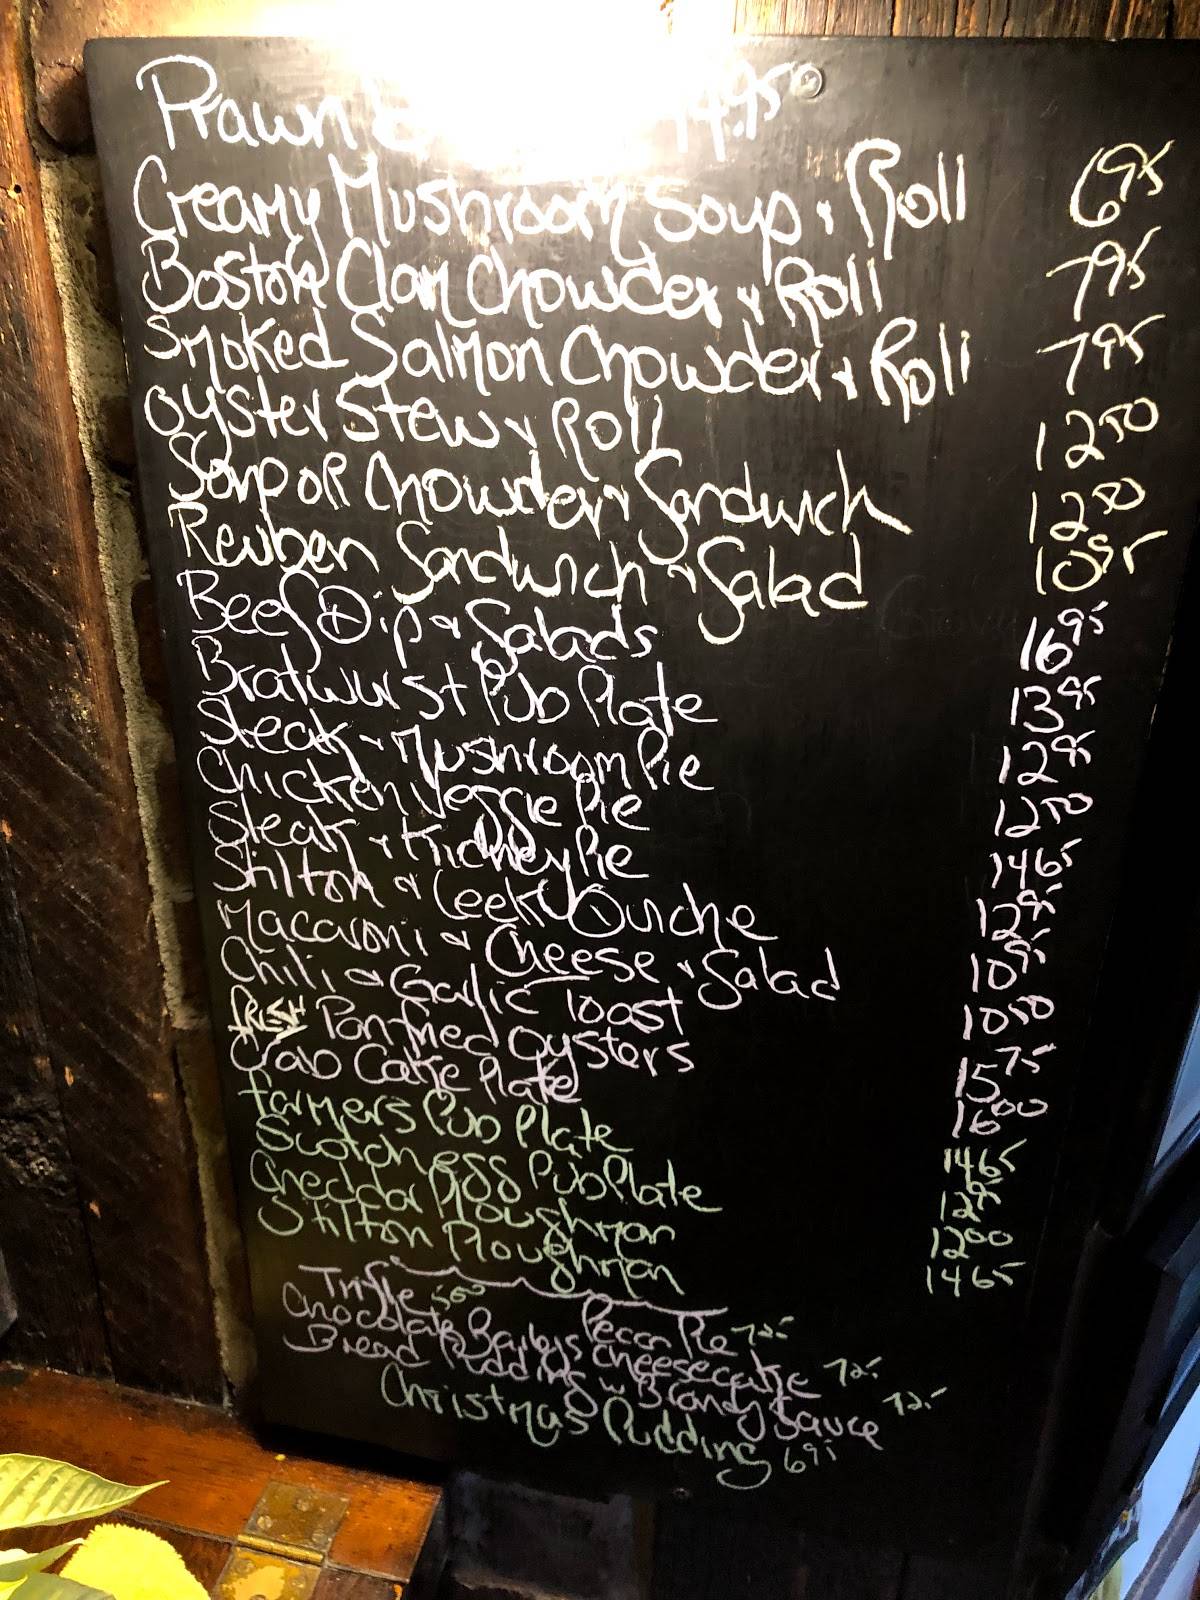 Prawn 14.95
Creamy Mushroom Soup & Roll 6 95
Boston Clam Chowder & Roll 7 95
Smoked Salmon Chowder & Roll 7 95
Oyster Stew & Roll 12 50
Soup or Chowder & Sandwich 12 50
Reuben Sandwich & Salad 10 95
Beef Dip & Salads 16 95
Bratwurst Pub Plate 13 95
Steak & Mushroom Pie 12 95
Chicken Veggie Pie 12 50
Steak & Kidney Pie 14 65
Stilton & Leek Quiche 12 95
Macaroni & Cheese & Salad 10 95
Chili & Garlic Toast 10 50
Fresh Pan-fried Oysters 15 75
Crab Cake Plate 16 00
Farmers Pub Plate 14 65
Scotch Egg Pub Plate 12 95
Cheddar Ploughman 12 00
Stilton Ploughman 14 65
Trifle 5 00 Pecan Pie 7 25
Chocolate Baileys Cheesecake 7 25
Bread Pudding w Brandy Sauce 7 25
Christmas Pudding 6 95